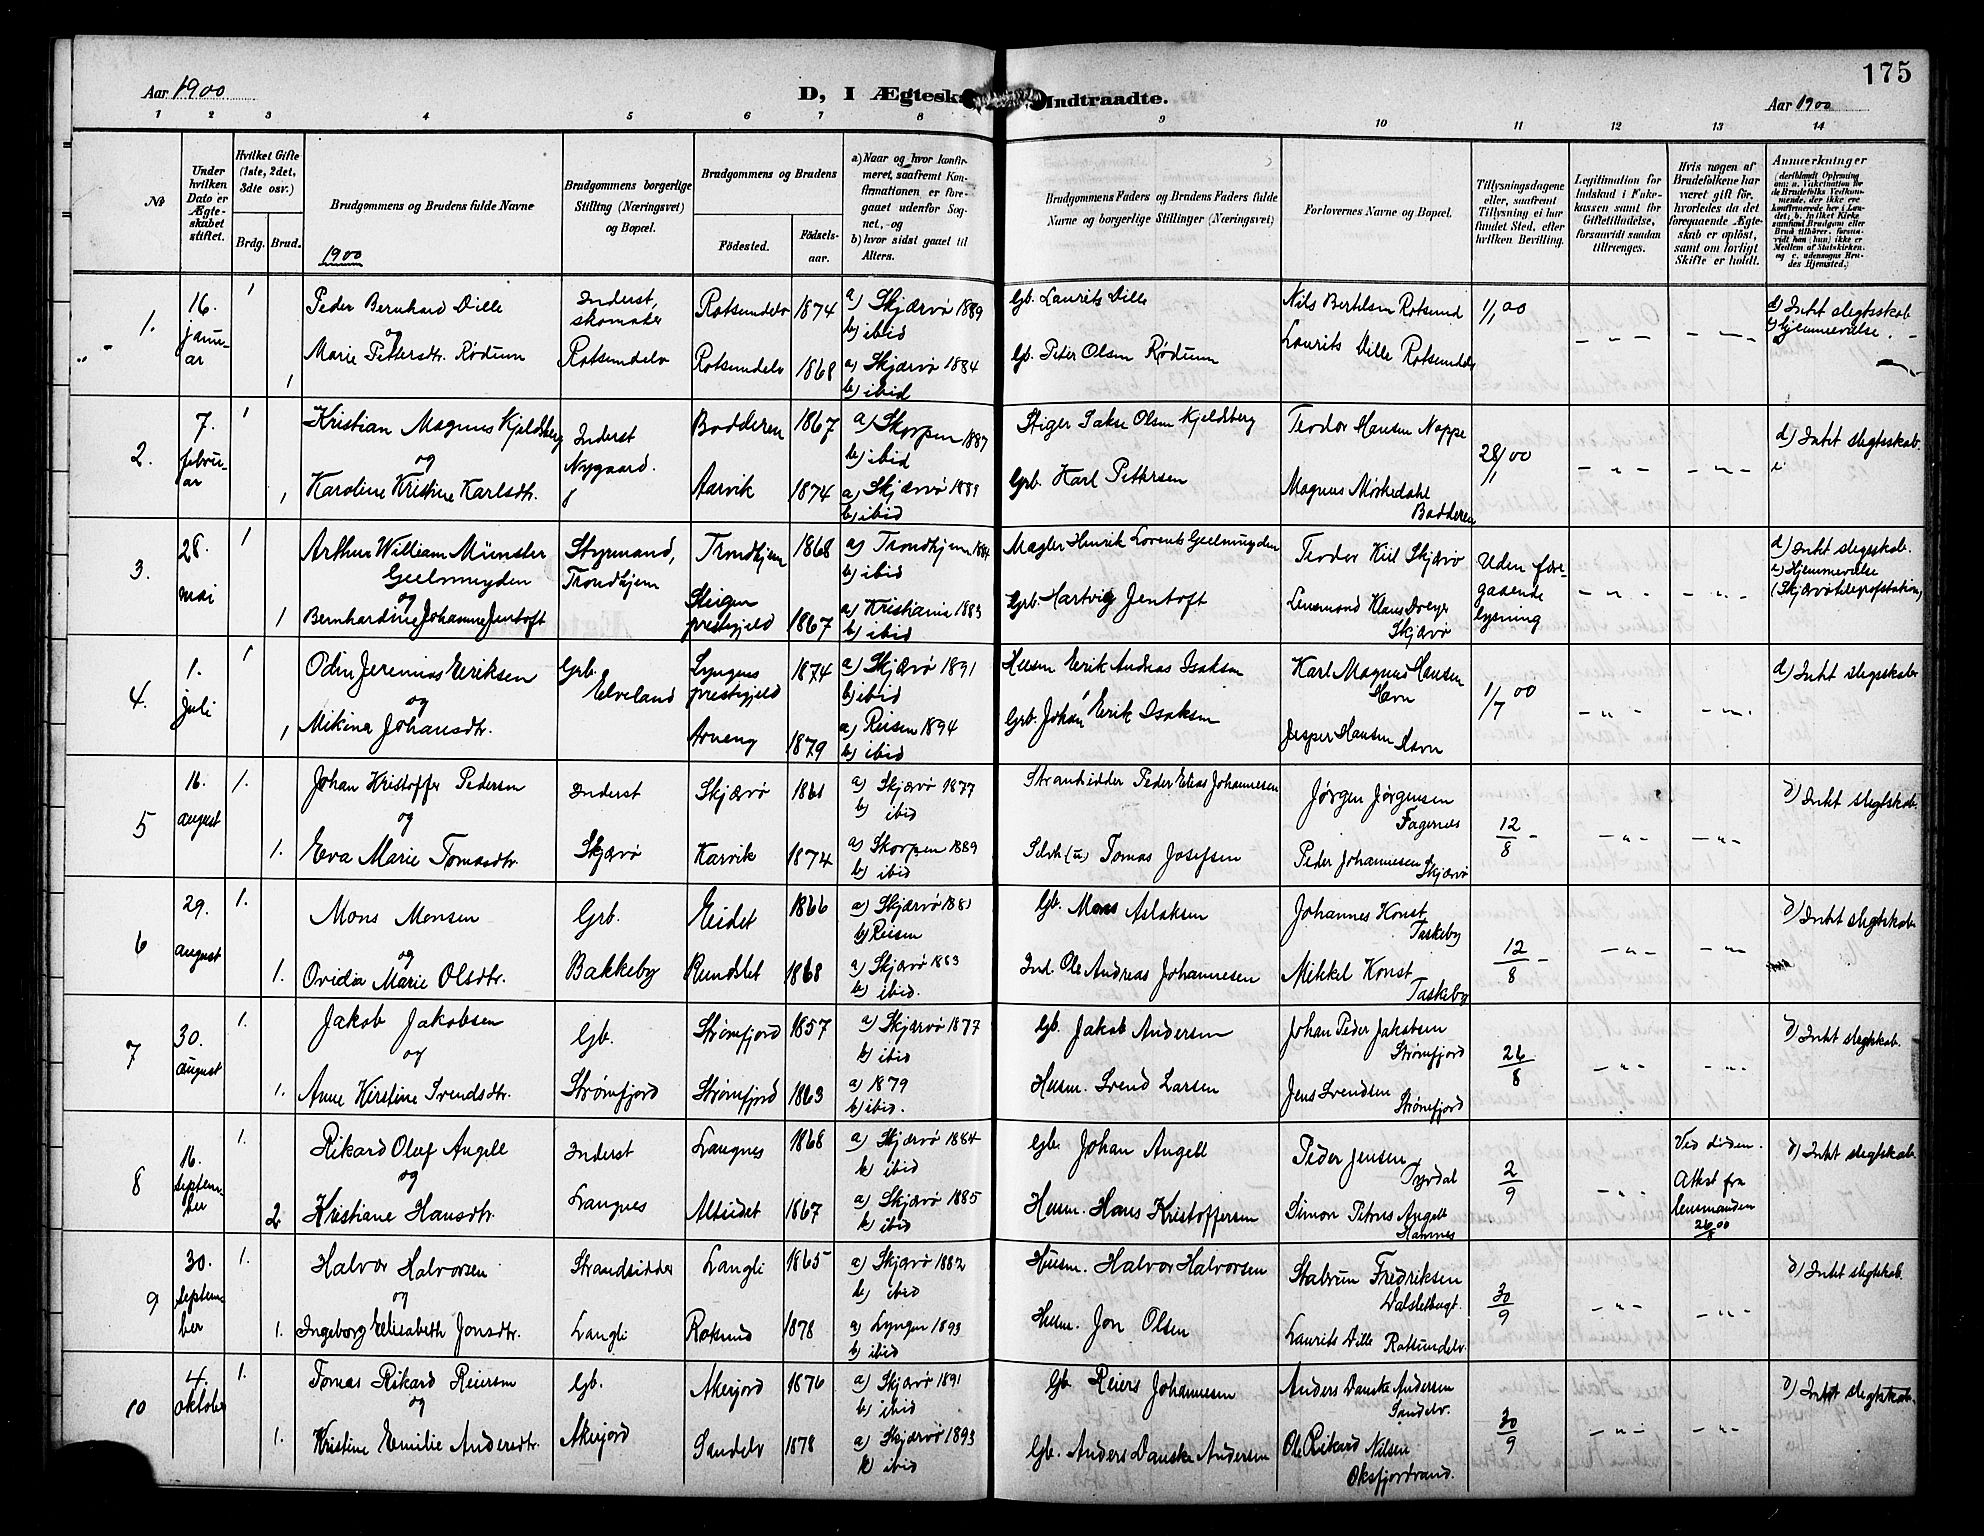 175
Aar 1900
D, I Ægtesk
Indtraadte.
Aar 1900
1 2 3 4 5 6 7 8 9 10 11 12 13 14
No
Under hvilken Dato er Ægteskabet stiftet.
Hvilket Gifte (1ste, 2det, 3die osv.)
Brdg. Brud.
Brudgommens og Brudens fulde Navne
1900
Brudgommens borgerlige Stilling (Næringsvei) og Bopæl.
Brudgommens og Brudens
Fødested.
Fødselsaar.
a) Naar og hvor konfirmeret, saafremt Konfirmationen er foregaaet udenfor Sognet, og
b) hvor sidst gaaet til Alters.
Brudgommens Faders og Brudens Faders fulde Navne og borgerlige Stillinger (Næringsvei)
Forlovernes Navne og Bopæl.
Tillysningsdagene eller, saafremt Tillysning ei har fundet Sted, efter hvilken Bevilling.
Legitimation for Indskud i Enkekassen samt for Giftetilladelse, forsaavidt saadan tiltrænges.
Hvis nogen af Brudefolkene har været gift før, hvorledes da det foregaaende Ægteskab er opløst, samt om lovligt Skifte er holdt.
Anmærkninger
1. 16. januar 1
Peder Bernhard Dille
og
Marie Pettersdtr. Rødum
1
Inderst, skomaker
Rotsundelv
Rotsundelv 1874 a) Skjærvø 1889
b) ibid
Rotsundelv 1868 a) Skjærvø 1884
b) ibid
Gb. Laurits Dille
Gb. Peter Olsen Rødum
Nils Bertelsen Rotsund
Laurits Dille Rotsundelv
1/1 00
- " -
- " -
d) Intet slegtsskab
e) Hjemmevielse.
2. 7. februar 1
Kristian Magnus Kjeldsberg
og
Karoline Kristine Karlsdtr.
1
Inderst
Nygaard.
Badderen 1867 a) Skorpen 1887
b) ibid
Aarvik 1874 a) Skjærvø 1889
b) ibid
Olsen Kjeldsberg
Grb. Karl Pettersen
Teodor Hansen Noppe
Magnus Mørkedahl
Badderen
28/1 00
- " -
- " -
d) Intet slegtsskab.
3. 28. mai 1
Arthur William Münster
Geelmuyden
og
Bernhardine Johanne Jentoft
1
Styrmand,
Trondhjem
Trondhjem 1868 a) Trondhjem 1884
b) ibid
Steigen
prestegjeld 1867 a) Kristiania 1883
b) ibid
Mægler Henrik Lorents Geelmuyden
Grb. Hartvig Jentoft
Teodor Kiil Skjærvø
Lensmand Klaus Dreyer
Skjærvø
Uden foregaaende lysning
- " -
- " -
d) Intet slegsskab.
e) Hjemmevielse
(Skjærvø telegrafstation)
4. 1. juli 1
Odin Jeremias Eriksen
og
Mikina Johansdtr.
1
Grb.
Elveland
Lyngens
prestegjeld 1874 a) Skjærvø 1891
b) ibid
Arneng 1879 a) Reisen 1894
b) ibid
Husm Erik Andreas Isaksen
Grb. Johan Erik Isaksen
Karl Magnus Hansen
Havn
Jesper Hansen Havn
1/7 00
- " -
- " -
d) Intet slegsskab
5 16. august 1.
Johan Kristoffer Pedersen
og
Eva Marie Tomasdtr.
1.
Inderst
Skjærvø
Skjærvø 1861 a) Skjærvø 1877
b) ibid
Karvik 1874 a) Skorpen 1889
b) ibid
Strandsidder Peder Elias Johannesen
Tomas Josefsen
Jørgen Jørgensen
Fagernes
Peder Johannesen Skjærvø
12/8 -
- " -
- " -
d) Intet slegtskab.
6 29. august 1.
Mons Monsen
og
Ovidia Marie Olsdtr.
1.
Grb.
Bakkeby
Eidet 1866 a) Skjærvø 1881
b) Reisen
Rundslet 1868 a) Skjærvø 1883
b) ibid.
Gb. Mons Aslaksen
Ind. Ole Andreas Johannesen
Johannes Konst
Taskeby
Mikkel Konst
Taskeby
12/8 -
- " -
- " -
d) Intet slegtskab
7 30. august 1.
Jakob Jakobsen
og
Anne Kirstine Svendsdtr.
1.
Gb.
Strømfjord
Strømfjord 1857 a) Skjærvø 1877
b) ibid
Strømfjord 1863 a) 1879
b) ibid.
Gb. Jakob Andersen
Husm. Svend Larsen
Johan Peder Jakobsen
Strømfjord
Jens Svendsen
Strømfjord
26/8
- " -
- " -
d) Intet slegtskab.
8 16. september 1.
Rikard Olaf Angell
og
Kristiane Hansdtr.
2
Inderst
Langnes
Langnes 1868 a) Skjærvø 1884
b) ibid
Alteidet 1867 a) Skjærvø 1885
b) ibid
Gb. Johan Angell
Husm. Hans Kristoffersen
Peder Jensen
Tyrdal
Simon Petrus Angell
Hamnes
2/9
- " -
Ved døden.
Attest fra lensmanden
26/8 00
d) Intet slegtskab.
9 30. september 1.
Halvor Halvorsen
og
Ingeborg Elisabeth Jonsdtr.
1.
Strandsidder
Langli
Langli 1865 a) Skjærvø 1882
b) ibid
Rotsund 1878 a) Lyngen 1893
b) ibid
Husm. Halvor Halvorsen
Husm. Jon Olsen
Fredriksen
Valsletbugt.
Laurits Dille Rotsundelv.
30/9
- " -
- " -
d) Intet slegtskab.
10 4. oktober 1.
Tomas Rikard Reiersen
og
Kristine Emilie Andersdtr.
1.
Gb.
Akerjord
Akerjord 1876 a) Skjærvø 1891
b) ibid
Sandelv 1878 a) Skjærvø 1893
b) ibid
Gb. Reiers Johannesen
Gb. Anders Danske Andersen
Anders Danske Andersen
Sandelv.
Ole Rikard Nilsen
Oksfjordvand.
30/9
- " -
- " -
d) Intet slegtskab.